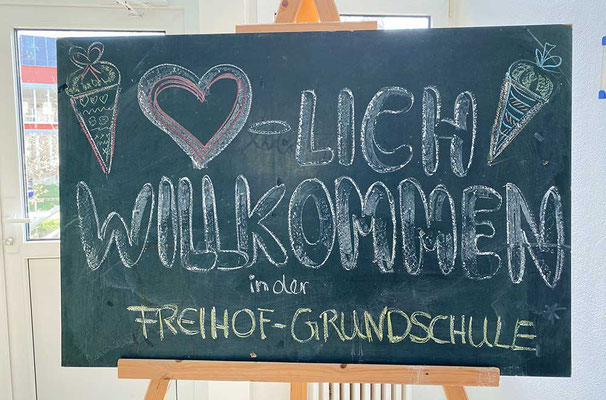 ♥-LICH
WILLKOMMEN
in der
FREIHOF-GRUNDSCHULE